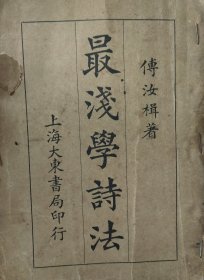 傅汝楫著
最淺學詩法
上海大東書局印行